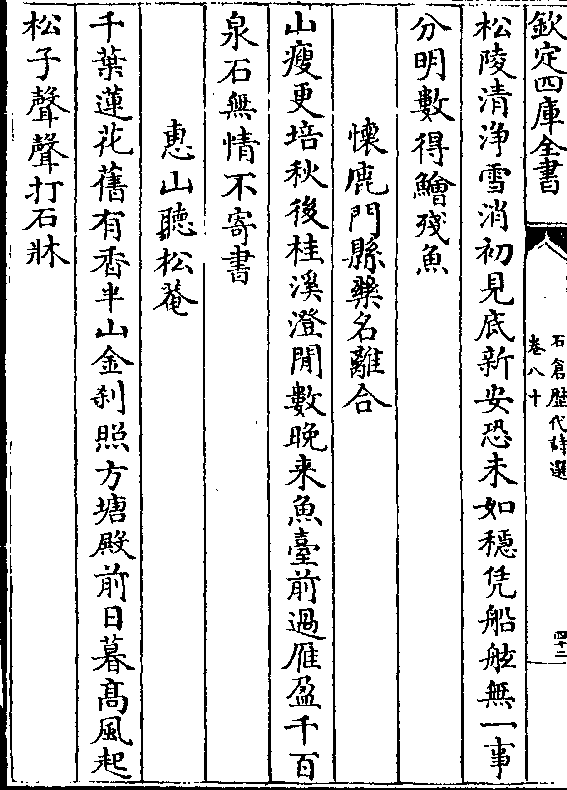 欽定四庫全書
石倉歴代詩選
卷八十
四十二
松陵清浄雪消初見底新安恐未如穏凭船舷無一事
分明數得鱠殘魚
懷鹿門縣藥名離合
山瘦更培秋後桂溪澄閒數晚来魚臺前過雁盈千百
泉石無情不寄書
惠山聽松菴
千葉蓮花舊有香半山金刹照方塘殿前日暮髙風起
松子聲聲打石牀